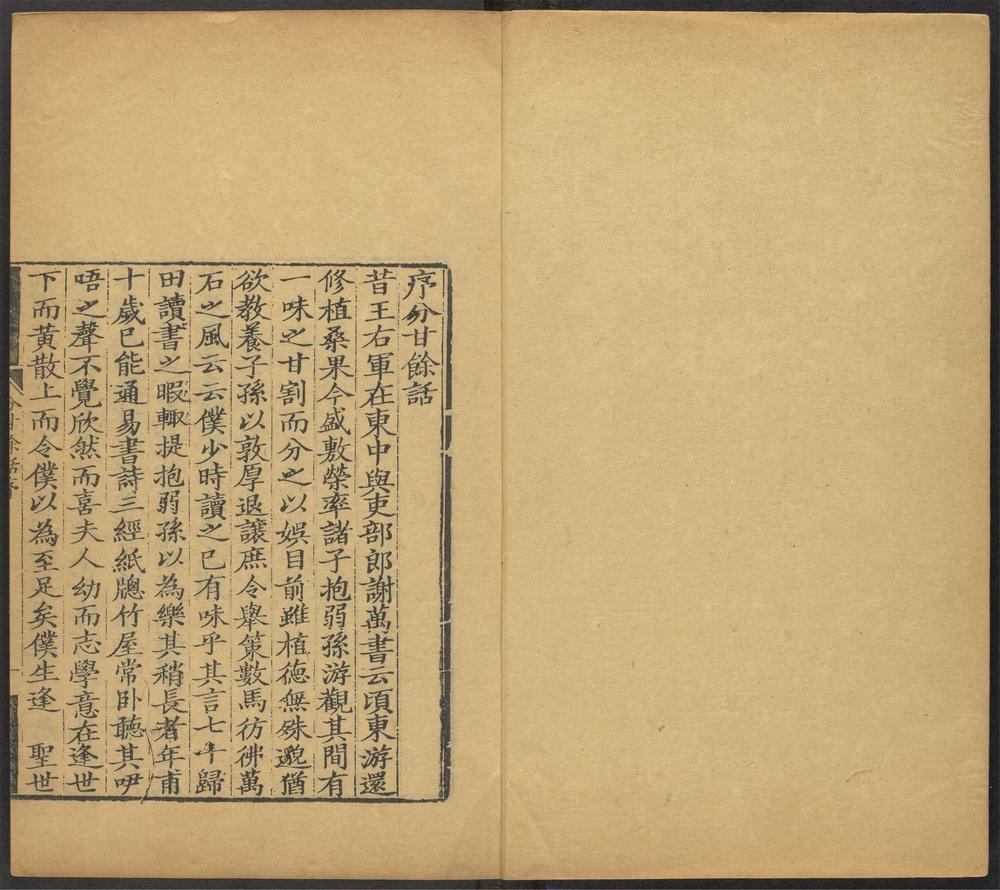 序分甘餘話
昔王右軍在東中與吏部郎謝萬書云頃東游還
修植桑果今盛敷榮率諸子抱弱孫游觀其間有
一味之甘割而分之以娛目前雖植德無殊邈猶
欲教養子孫以敦厚退讓庶令舉策數馬彷彿萬
石之風云云僕少時讀之已有味乎其言七十歸
田讀書之暇輙提抱弱孫以為樂其稍長者年甫
十歲已能通易書詩三經紙牕竹屋常卧聽其吚
唔之聲不覺欣然而喜夫人幼而志學意在逢世
下而黃散上而令僕以為至足矣僕生逢　聖世
分甘餘話序
一